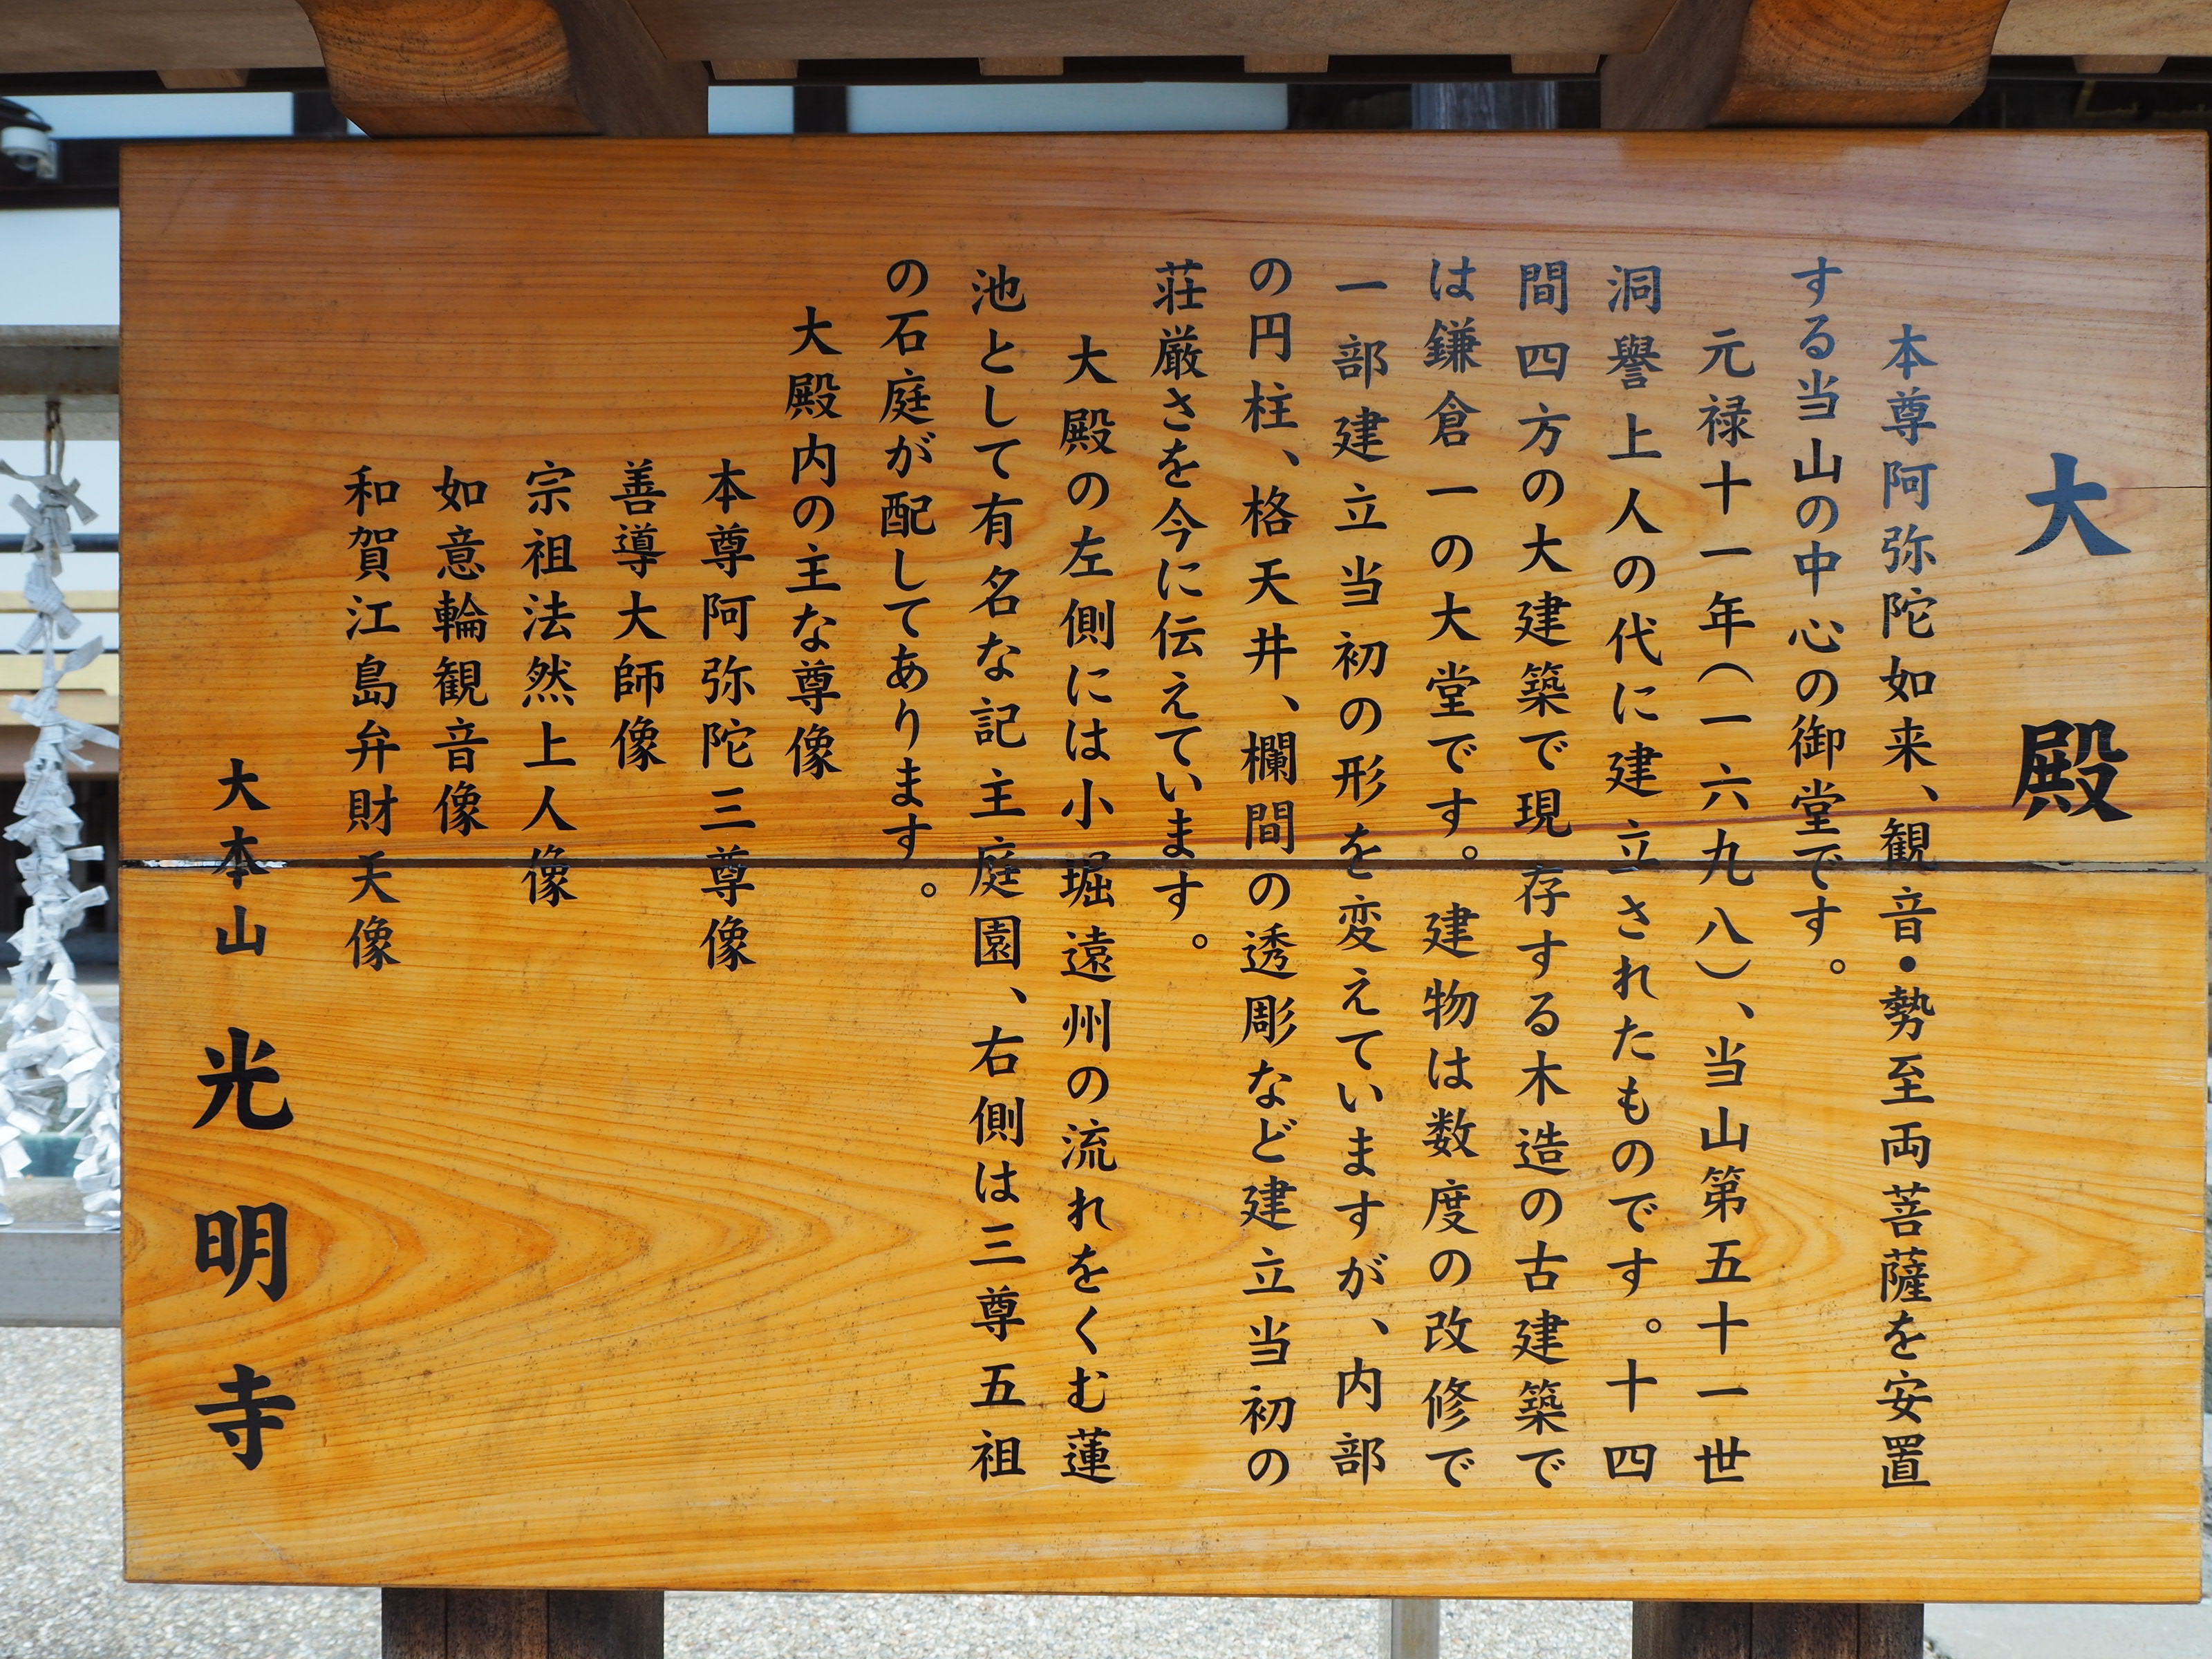 大殿
本尊阿弥陀如来、観音・勢至両菩薩を安置
する当山の中心の御堂です。
元禄十一年(一六九八)、当山第五十一世
洞譽上人の代に建立されたものです。十四
間四方の大建築で現存する木造の古建築で
は鎌倉一の大堂です。建物は数度の改修で
一部建立当初の形を変えていますが、内部
の円柱、格天井、欄間の透彫など建立当初の
荘厳さを今に伝えています。
大殿の左側には小堀遠州の流れをくむ蓮
池として有名な記主庭園、右側は三尊五祖
の石庭が配してあります。
大殿内の主な尊像
本尊阿弥陀三尊像
善導大師像
宗祖法然上人像
如意輪観音像
和賀江島弁財天像
大本山 光明寺